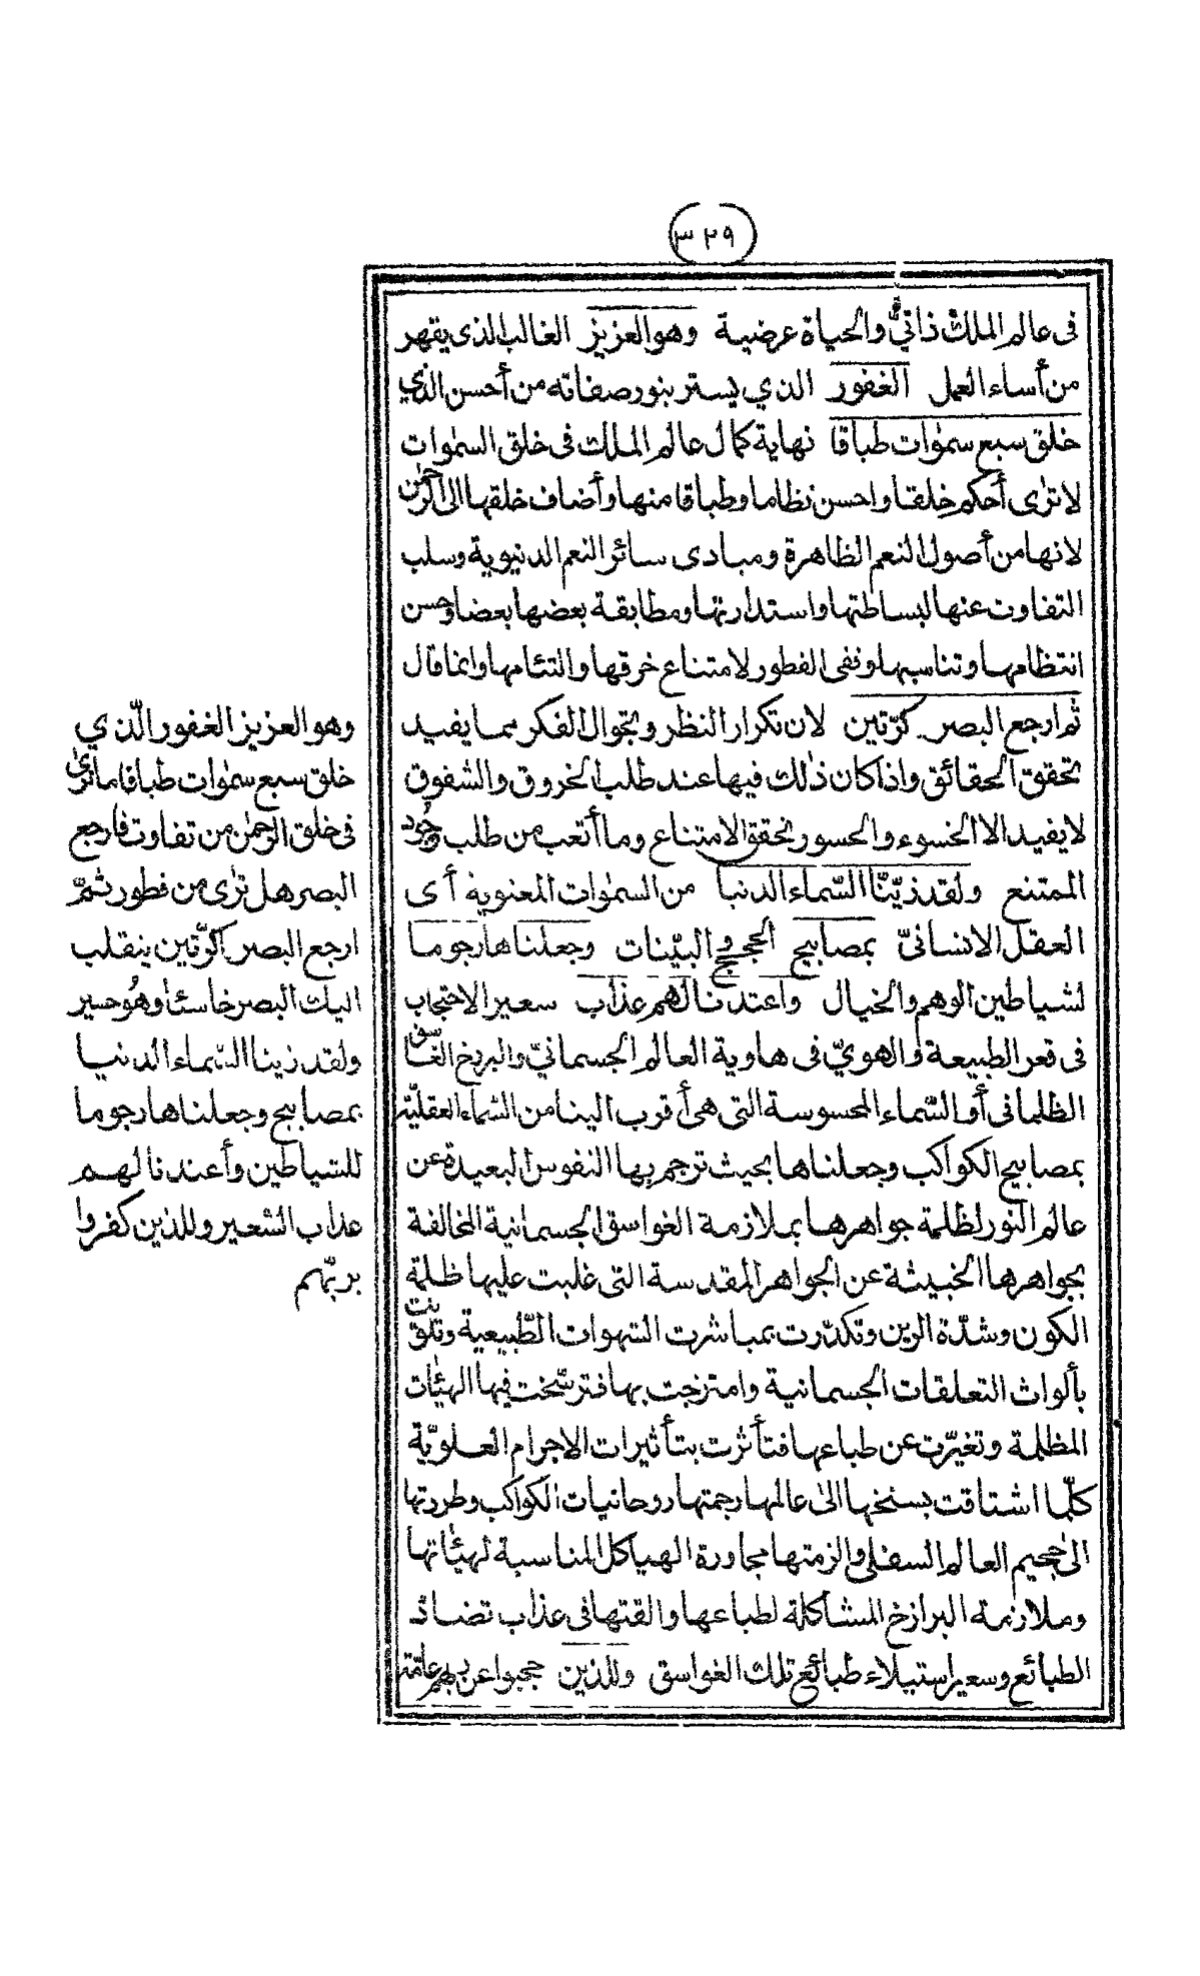 ٣٢٩
فى عالم الملك ذاتىّ والحياة عرضية وهو العزيز الغالب الذى يقهر
من أساء العمل الغفور الذي يستر بنور صفاته من أحسن الذي
خلق سبع سمٰوات طباقا نهاية كمال عالم الملك فى خلق السمٰوات
لا ترٰى أحكم خلقا واحسن نظاما وطباقا منها وأضاف خلقها الى الرحمٰن
لانها من أصول النعم الظاهرة ومبادى سائر النعم الدنيوية وسلب
التفاوت عنها لبساطتها واستدارتها ومطابقة بعضها بعضا وحسن
انتظامها وتناسبها ونفى الفطور لامتناع خرقها والتئامها وانما قال
ثم ارجع البصر كرّتين لان تكرار النظر وتجوال الفكر مما يفيد
تحقق الحقائق واذا كان ذٰلك فيها عند طلب الخروق والشقوق
لا يفيد الا الخسوء والحسور تحقق الامتناع وما أتعب من طلب وجود
الممتنع ولقد زيّنّا السّماء الدنيا من السمٰوات المعنوية أى
العقل الانسانىّ بمصابيح الحجج والبيّنات وجعلناها رجوما
لشياطين الوهم والخيال واعتدنا لهم عذاب سعير الاحتجاب
فى قعر الطبيعة والهويّ فى هاوية العالم الجسمانيّ والبرزخ الغاسق
الظلمانى أو السّماء المحسوسة التى هى أقرب الينا من السّماء العقليّة
بمصابيح الكواكب وجعلناها بحيث ترجم بها النفوس البعيدة عن
عالم النور لظلمة جواهرها بملازمة الغواسق الجسمانية المخالفة
بجواهرها الخبيثة عن الجواهر المقدسة التى غلبت عليها ظلمة
الكون وشدّة الرين وتكدّرت بمباشرت الشهوات الطّبيعية وتلوّثت
بألواث التعلقات الجسمانية وامتزجت بها فترسّخت فيها الهيئات
المظلمة وتغيّرت عن طباعها فتأثرت بتأثيرات الاجرام العلويّة
كلّما اشتاقت بسنخها الىٰ عالمها رجمتها روحانيات الكواكب وطردتها
الىٰ جحيم العالم السفلى والزمتها مجاورة الهياكل المناسبة لهيئاتها
وملازمة البرازخ المشاكلة لطباعها والقتها فى عذاب تضادّ
الطبائع وسعير استيلاء طبائع تلك الغواسق وللذين حجبوا عن ربهم عامّة
وهو العزيز الغفور الّذي
خلق سبع سمٰوات طباقا ما ترىٰ
فى خلق الرحمٰن من تفاوت فارجع
البصر هل ترٰى من فطور ثمّ
ارجع البصر كرّتين ينقلب
اليك البصر خاسئا وهو حسير
ولقد زينا السّماء الدنيا
بمصابيح وجعلناها رجوما
للشياطين وأعتدنا لهم
عذاب السّعير وللذين كفروا
بربّهم